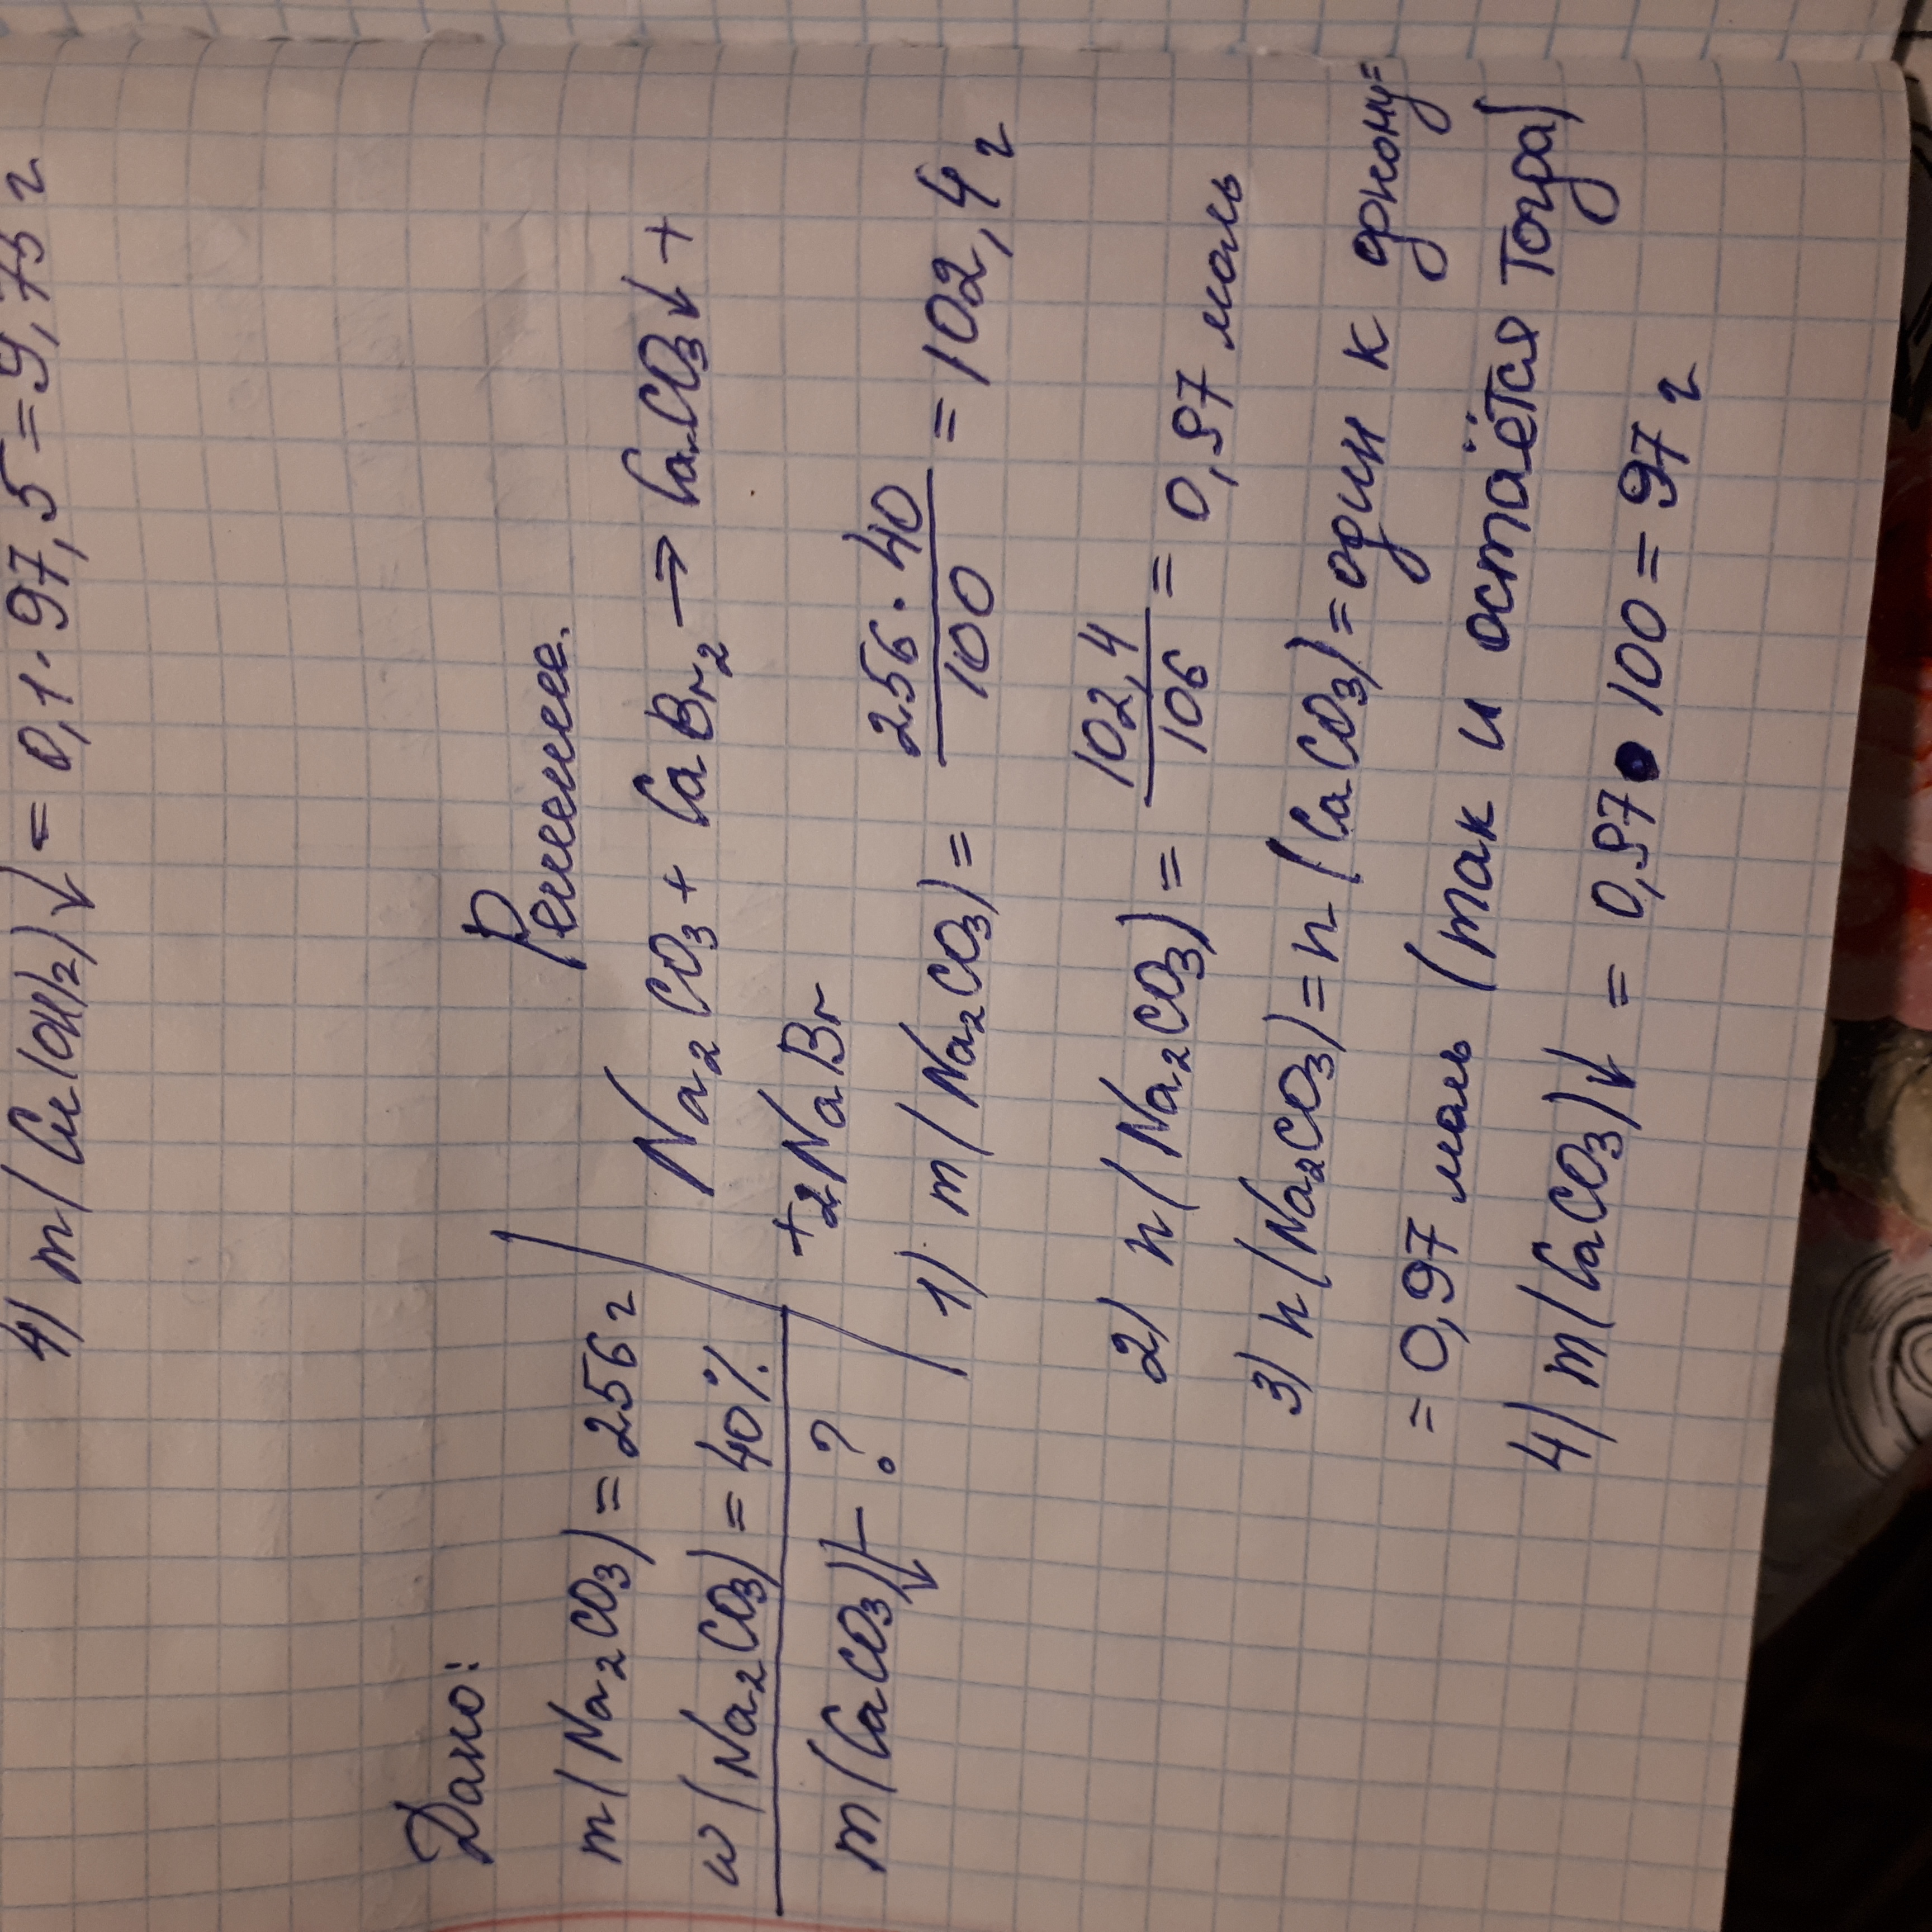 4) m(Cu(OH)₂)↓ = 0,1 · 97,5 = 9,75 г
Дано:
m(Na₂CO₃) = 256 г
w(Na₂CO₃) = 40%
m(CaCO₃)↓ - ?
Решение.
Na₂CO₃ + CaBr₂ → CaCO₃↓ +
+ 2NaBr
1) m(Na₂CO₃) = 256 · 40 / 100 = 102,4 г
2) n(Na₂CO₃) = 102,4 / 106 = 0,97 моль
3) n(Na₂CO₃) = n(CaCO₃) = один к одному =
= 0,97 моль (так и остаётся тогда)
4) m(CaCO₃)↓ = 0,97 • 100 = 97 г